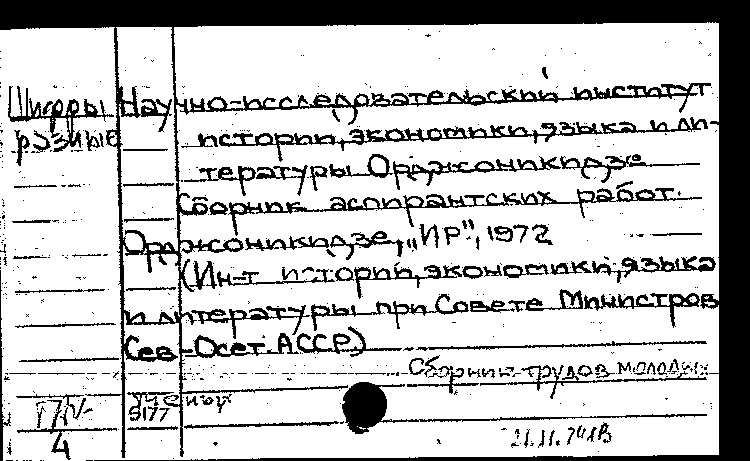 Шифры Научно-исследовательский институт
разные истории, экономики, языка и ли-
тературы Орджоникидзе
Сборник аспирантских работ.
Орджоникидзе, „ИР", 1972
(Ин-т истории, экономики, языка
и литературы при Совете Министров
Сев-Осет. АССР)
Сборник трудов молодых
ученых
9177
4
21.11.74